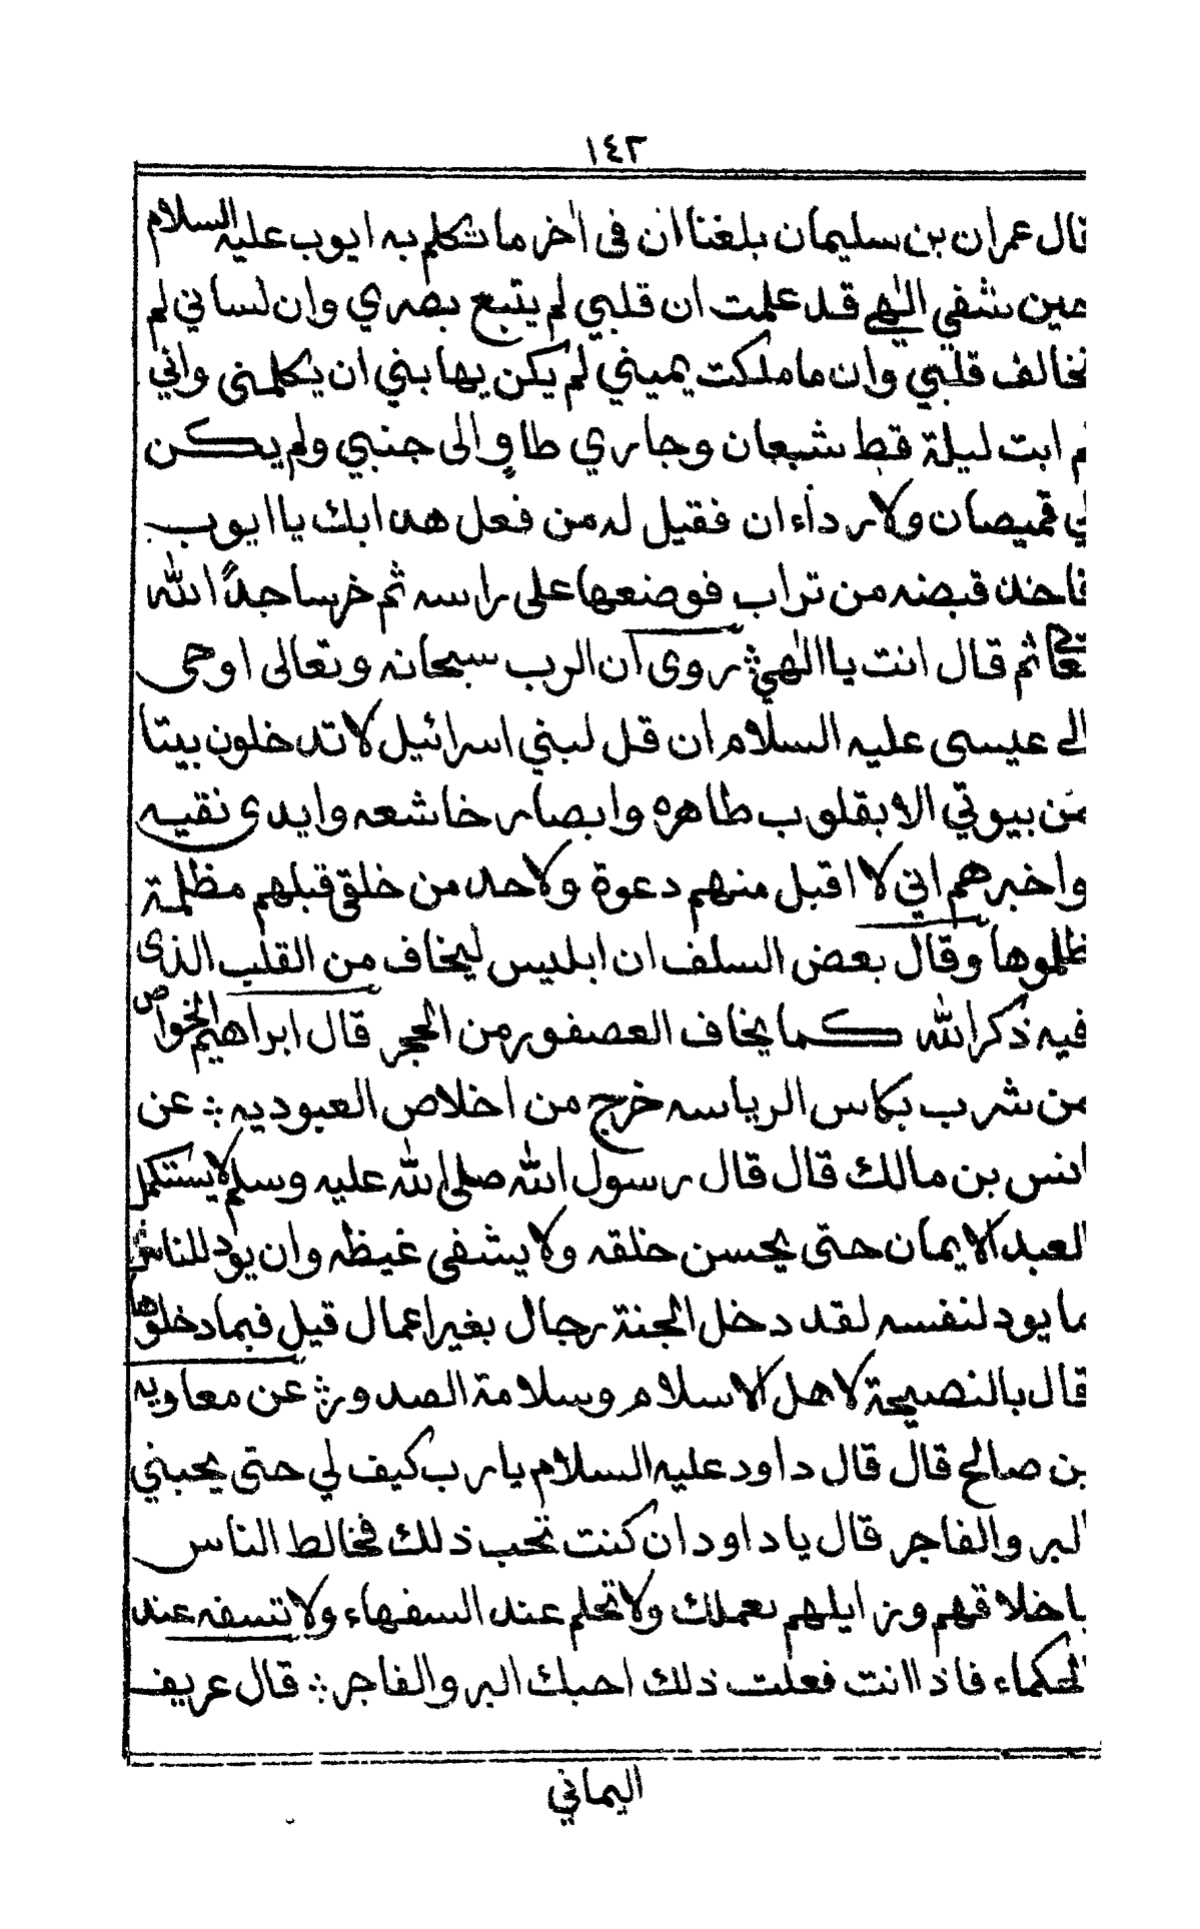 ١٤٣
قال عمران بن سليمان بلغنا ان في اٰخر ما تكلم به ايوب عليه السلام
حين شفي الٰهي قد علمت ان قلبي لم يتبع بصري وان لساني لم
يخالف قلبي وان ما ملكت يميني لم يكن يهابني ان يكلمني واني
لم ابت ليلة قط شبعان وجاري طاوٍ الى جنبي ولم يكن
لي قميصان ولا رداءان فقيل له من فعل هذا بك يا ايوب
فاخذ قبضه من تراب فوضعها على راسه ثم خر ساجدًا لله
تعالى ثم قال انت يا الٰهي ؞ روى ان الرب سبحانه وتعالى اوحى
الى عيسى عليه السلام ان قل لبني اسرائيل لا تدخلون بيتا
من بيوتي الا بقلوب طاهره وابصار خاشعه وايدى نقيه
واخبرهم اني لا اقبل منهم دعوة ولاحد من خلقي قبلهم مظلمة
ظلموها وقال بعض السلف ان ابليس ليخاف من القلب الذى
فيه ذكر الله كما يخاف العصفور من الحجر قال ابراهيم الخواص
من شرب بكاس الرياسه خرج من اخلاص العبوديه ؞ عن
انس بن مالك قال قال رسول الله صلى الله عليه وسلم لا يستكمل
العبد الايمان حتى يحسن خلقه ولا يشفى غيظه وان يود للناس
ما يود لنفسه لقد دخل الجنة رجال بغير اعمال قيل فبما دخلوها
قال بالنصيحة لاهل الاسلام وسلامة الصدور ؞ عن معاويه
بن صالح قال قال داود عليه السلام يا رب كيف لي حتى يحبني
البر والفاجر قال يا داود ان كنت تحب ذلك فخالط الناس
باخلاقهم وزايلهم بعملك ولا تحلم عند السفهاء ولا تسفه عند
الحكماء فاذا انت فعلت ذلك احبك البر والفاجر ؞ قال عريف
اليماني